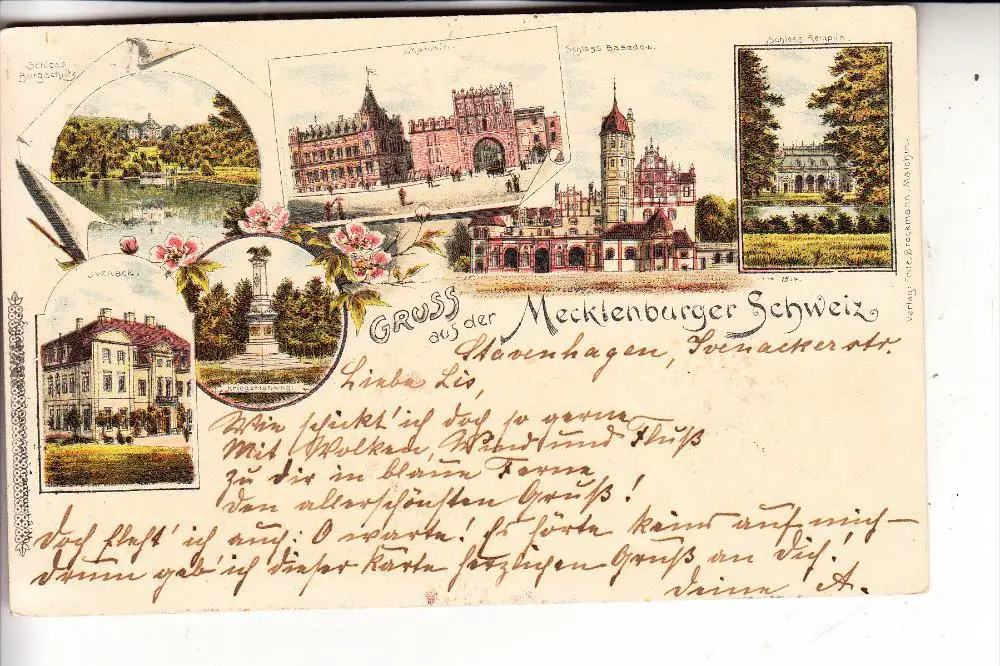 Schloss
Burgschlitz.
Malchin.
Schloss Basedow.
Schloss Remplin.
Ivenack.
Kriegerdenkmal.
Verlag: Fritz Breckmann, Malchin.
GRUSS
aus der
Mecklenburger Schweiz
Stavenhagen, Ivenackerstr.
Liebe Lis,
Wie schickt' ich doch so gerne
Mit Wolken, Wind und Fluß
zu dir in blaue Ferne
den allerschönsten Gruß!
Doch fleht' ich auch: O warte! Es hörte keins auf mich –
drum geb' ich dieser Karte herzlichen Gruß an Dich!
Deine A.